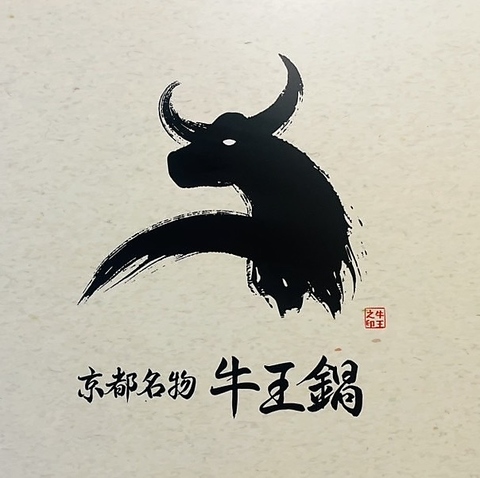 牛王
之印
京都名物 牛王鍋